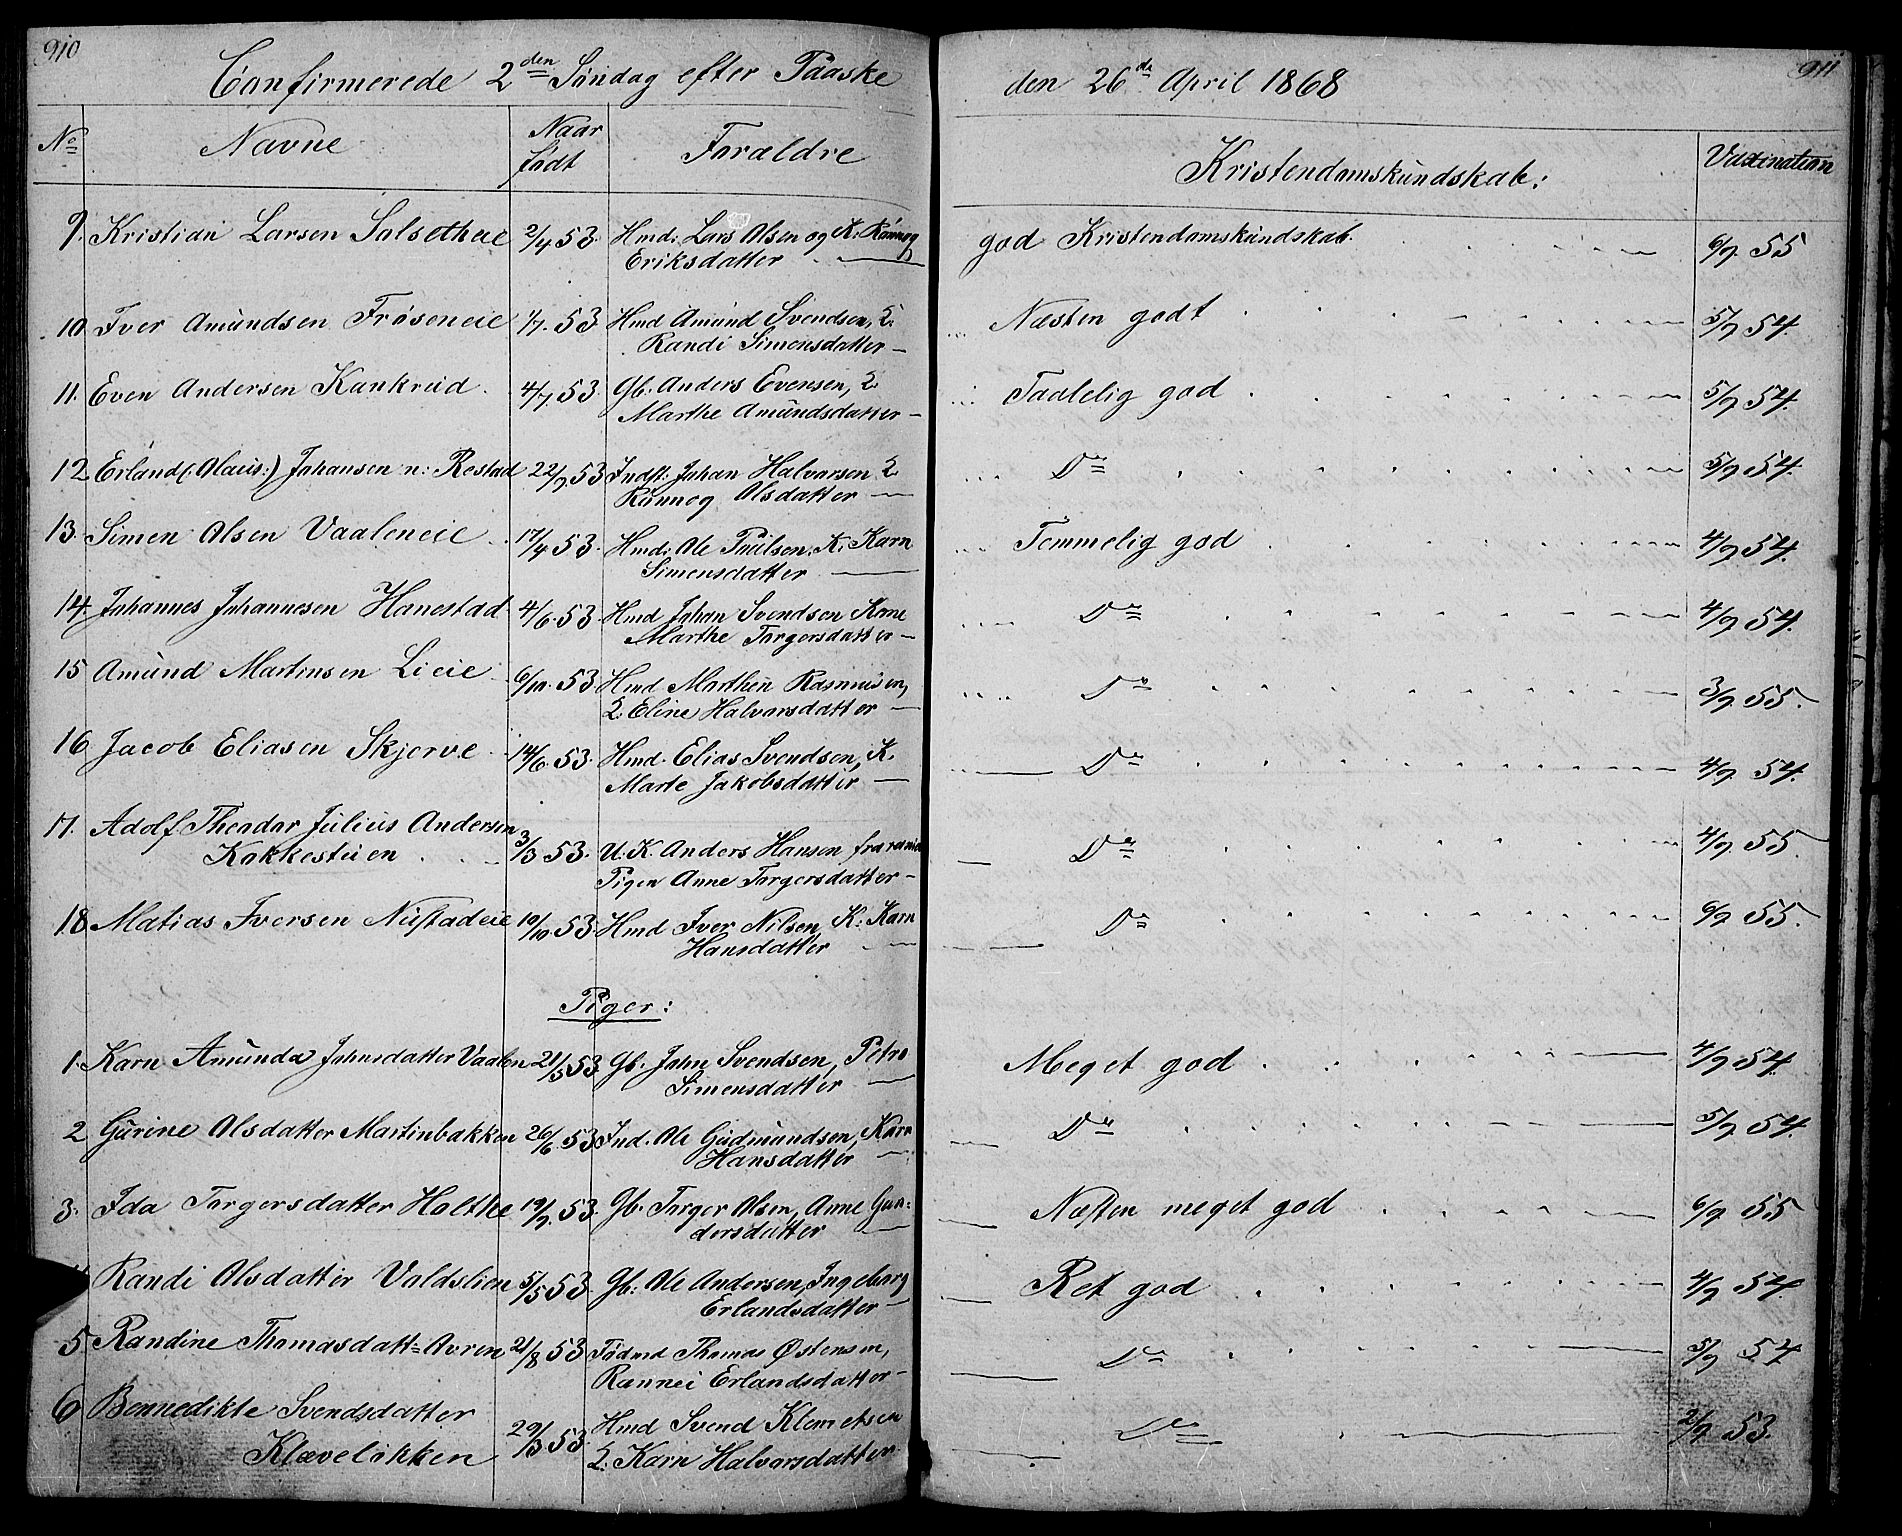 910
Confirmerede 2den Søndag efter Paaske
den 26de April 1868
911
No Navne Naar født Foraldre Kristendomskundskab: Vaxination
9. Kristian Larsen Solsetheie 2/4 53. Hmd: Lars Olsen og K. Rønnog god Kristendomskundskab. 6/9 55
Eriksdatter
10. Iver Amundsen Frøseneie 1/7. 53. Hmd Amund Svendsen, Næsten godt 5/9 54.
Randi Simensdatter
11. Even Andersen Kankrud 4/7. 53. Gb. Anders Evensen, Taalelig god 5/9 54.
Marthe Amundsdatter
12. Erland (: Olaus:) Johansen n: Rostad 22/9 53 Indst: Johan Halvorsen Do 5/9 54.
Rønnog Olsdatter
13. Simen Olsen Vaaleneie 17/4 53. Hmd: Ole Pæilsen. K: Karn Temmelig god 4/9 54.
Simensdatter
14. Johannes Johannesen Hanestad 4/6. 53. Hmd Johan Svendsen Kone Do 4/9 54.
Marthe Torgersdatter
15 Amund Martinsen Lieie 6/10. 53 Hmd Marthin Rasmusen, Do 3/9 55.
Eline Halvorsdatter
16 Jacob Eliasen Skjerve 14/6. 53. Hmd. Elias Svendsen, K. Do 4/9 54.
Marte Jakobsdatter
17. Adolf Theodor Julius Andersen
Kokkestuen 3/3 53. U. K. Anders Hansen Do 4/9. 55.
Pigen Anne Torgersdatter
18. Matias Iversen Nustadeie 10/10 53 Hmd Iver Nilsen, K: Karn Do 6/9 55.
Hansdatter
Piger:
1. Karn Amunda Johnsdatter Vaalen 21/5 53. Gb. John Svendsen, Petro Meget god 4/9 54.
Simensdatter
2. Gurine Olsdatter Martinbakken 26/6 53 Ind. Ole Gudmundsen, Karn Do 5/9 54.
Hansdatter
3. Ida Torgersdatter Holthe 19/9. 53. Gb. Torger Olsen, Anne Gun- Næsten meget god 6/9 55
dersdatter
Randi Olsdatter Valdslien 5/5 53. Gb: Ole Andersen, Ingeborg Ret god 4/9 54.
Erlandsdatter
5 Randine Thomasdatt: Avren 21/8 53 Fødrd Thomas Østensen, Do 5/9 54
Rønnei Erlandsdatter
6 Bennedikte Svendsdatter Hmd Svend Klemetsen Do 2/9 53.
Klæveløkken 29/3 53. Karn Halvorsdatter